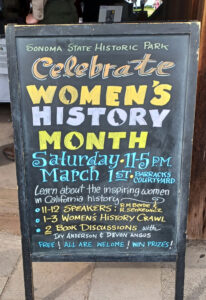 SONOMA STATE HISTORIC PARK
Celebrate
WOMEN'S
HISTORY
MONTH
Saturday • 11-5 PM
March 1ST • BARRACKS
COURTYARD
Learn about the inspiring women
in California history
• 11-12 SPEAKERS:
• 1-3 WOMEN'S HISTORY CRAWL
• 2 BOOK DISCUSSIONS with
ANDERSON & DEVON ANGUS
FREE! ALL ARE WELCOME! WIN PRIZES!